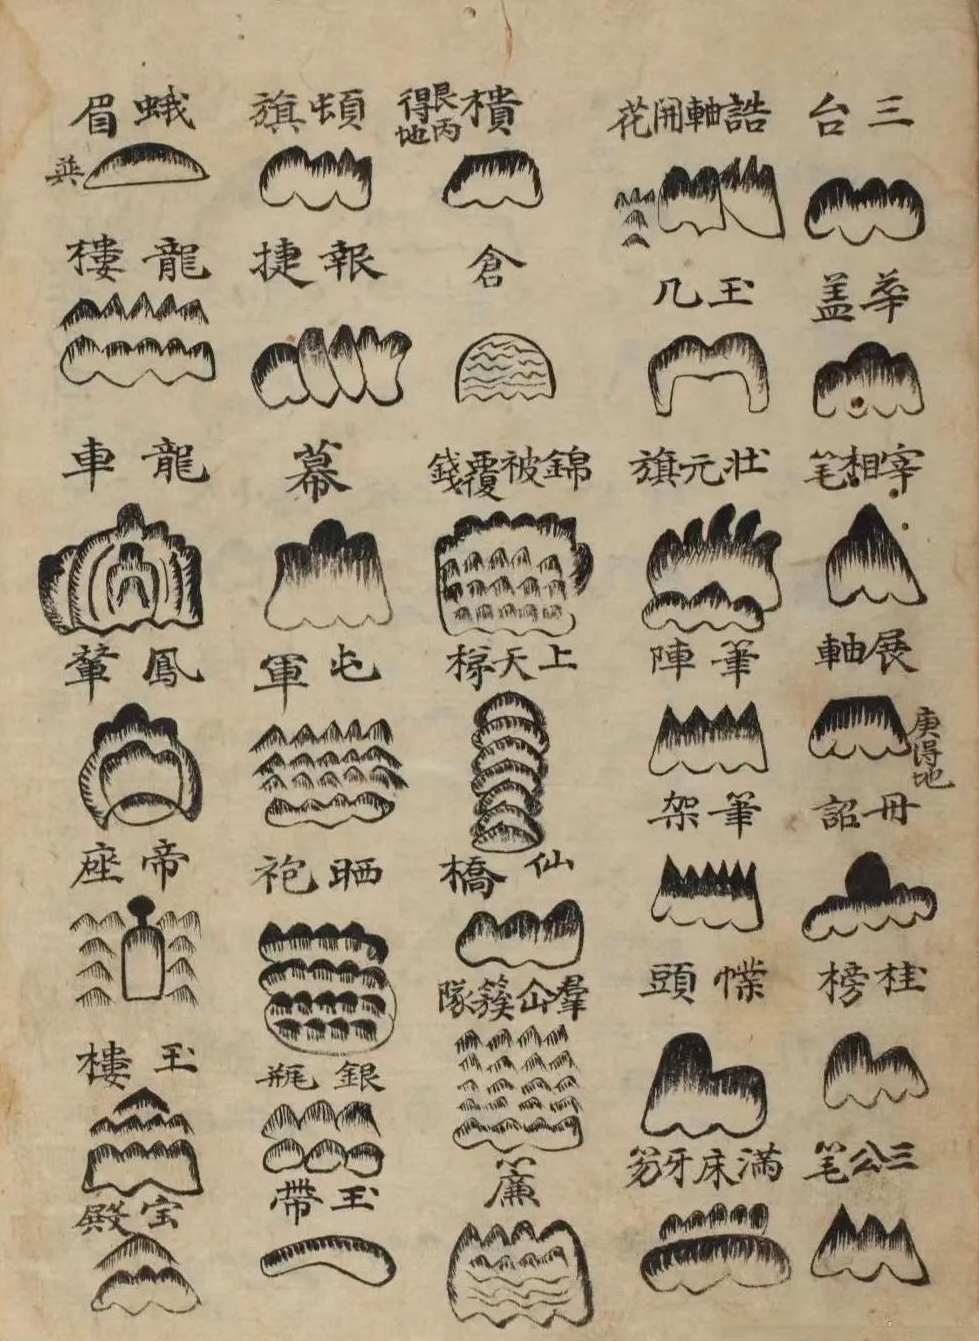 三台
華盖
宰相笔
展軸
庚得地
冊詔
桂榜
三公笔
誥軸開花
玉几
壯元旗
筆陣
筆架
幞頭
滿床牙笏
樻
艮丙得地
倉
錦被覆錢
上天梯
仙橋
羣仚簇隊
簾
頓旗
報捷
幕
屯軍
晒袍
銀瓶
玉帶
蛾眉
龍樓
龍車
鳳輦
帝座
玉樓
宝殿